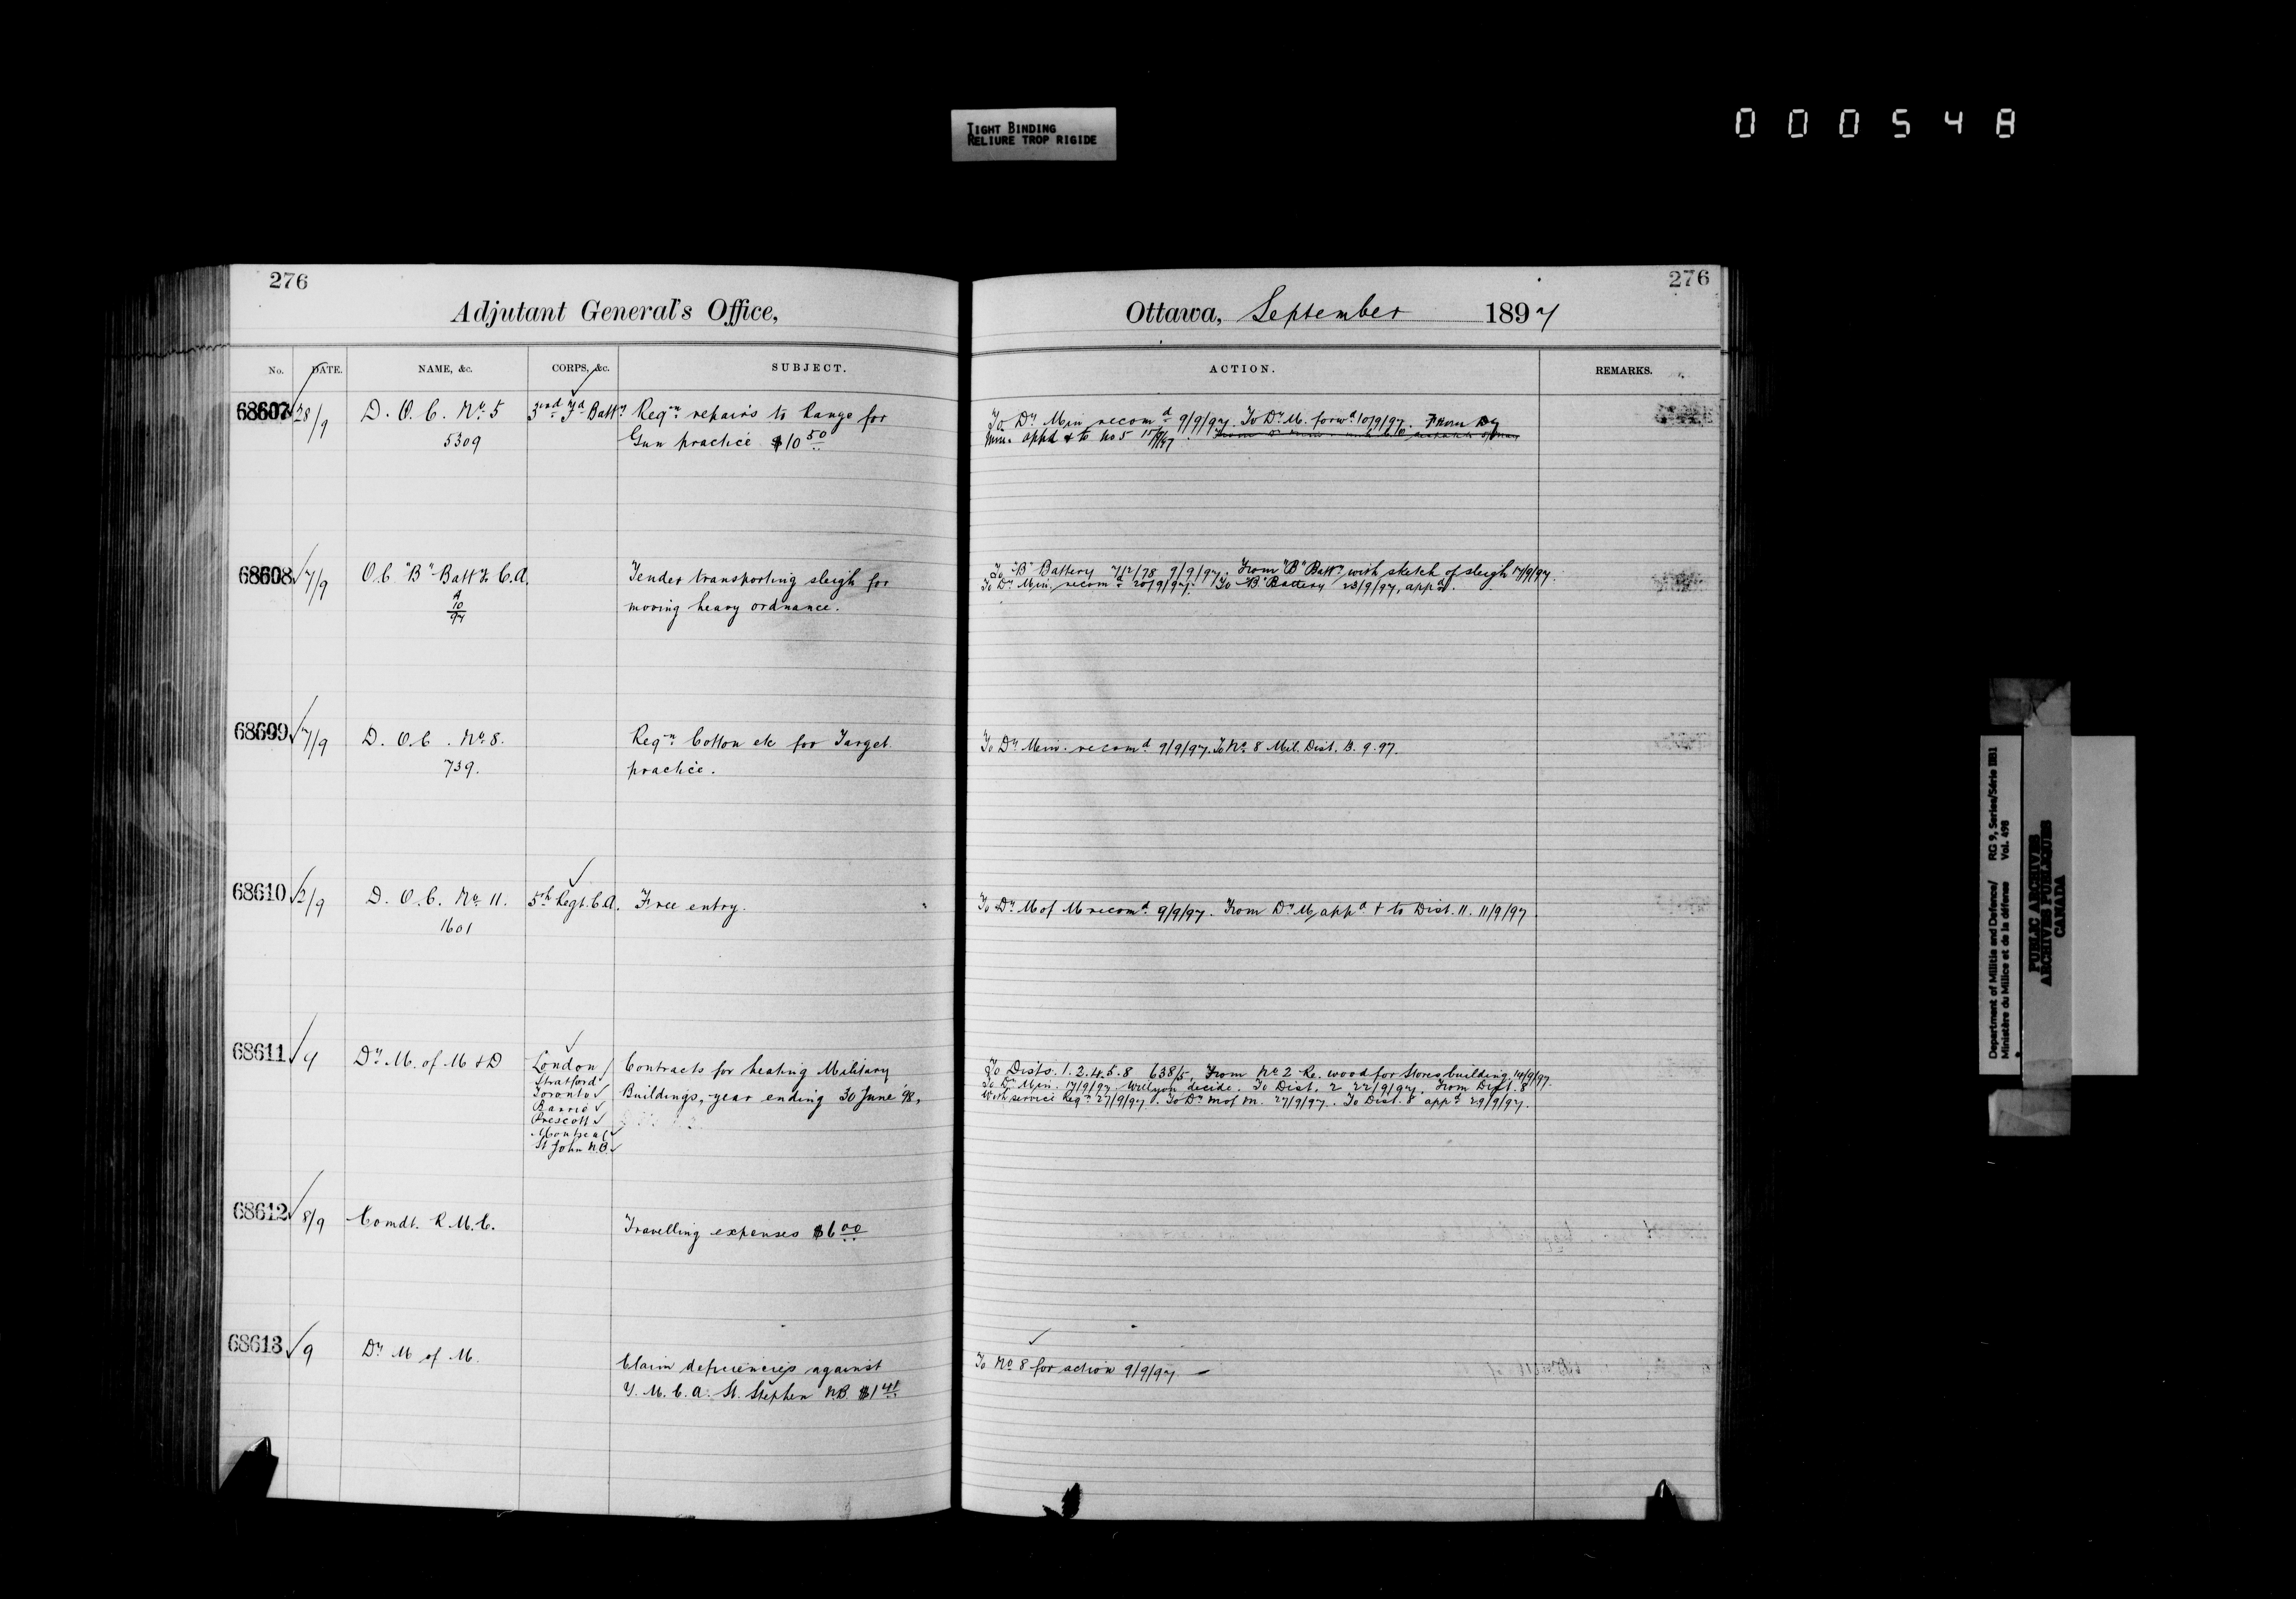 TIGHT BINDING
RELIURE TROP RIGIDE
000548
276
Adjutant General's Office,
No. DATE. NAME, &c. CORPS, &c. SUBJECT.
68607 28/9 D. O. C. No. 5 Fd Batty Reqn repairs to Range for
5309 Gun practice $10 50
68608 7/9 O.C. "B" Batty C.A. Tender transporting sleigh for
A
10
97
moving heavy ordnance.
68609 7/9 D. O.C. No. 8. Reqn Cotton etc for Target
739. practice.
68610 2/9 D. O. C. No. 11. 5th Regt. C.A. Free entry.
1601
68611 9 Dy M. of M & D London Contracts for heating Military
Stratford
Toronto Buildings, year ending 30 June '98,
Barrie
Prescott
Montreal
St John N.B.
68612 8/9 Comdt. R.M.C. Travelling expenses $6 00
68613 9 Dy M of M. Claim deficiencies against
Y. M. C. A. St. Stephen N.B. $1 41
276
Ottawa, September 1897
ACTION. REMARKS.
To Dy Min recomd 9/9/97. To Dy M. forwd 10/9/97. From Dy
Min. appd & to No 5 15/9/97
To "B" Battery 9/9/97. From "B" Batty with sketch of sleigh 17/9/97.
To Dy Min. recomd 20/9/97. To "B" Battery 23/9/97, appd.
To Dy Min. recomd 9/9/97. To No. 8 Mil. Dist. 13.9.97.
To Dy M of M recomd. 9/9/97. From Dy M, appd & to Dist. 11. 11/9/97
To Dists. 1. 2. 4. 5. 8 638/5. From No. 2 Re. wood for Stores building 14/9/97.
To Dy Min. 17/9/97. Will you decide. To Dist. 2 22/9/97. From Dist. 8
with service Reqn 27/9/97. To Dy M of M. 27/9/97. To Dist. 8 appd 29/9/97.
To No 8 for action 9/9/97.
Department of Militia and Defence/ RG 9, Series/Série IIB1
Ministère du Milice et de la défense Vol. 498
PUBLIC ARCHIVES
ARCHIVES PUBLIQUES
CANADA